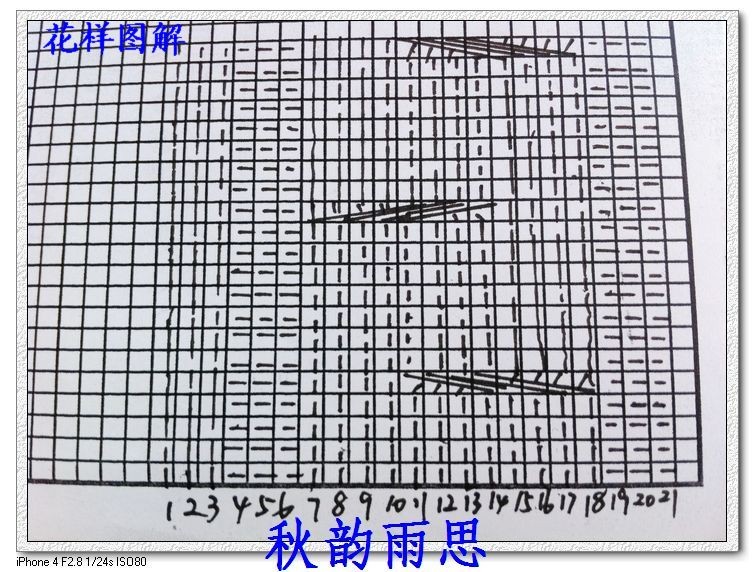 花样图解
1 2 3 4 5 6 7 8 9 10 11 12 13 14 15 16 17 18 19 20 21
秋韵雨思
iPhone 4 F2.8 1/24s ISO80